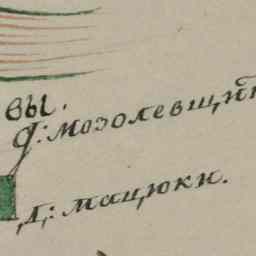 вы.
д: мозолевщи
д: мацюки.